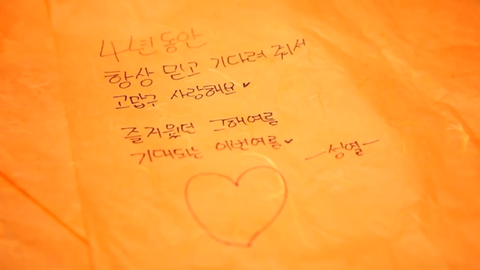 4년동안
항상 믿고 기다려 줘서
고맙구 사랑해요♥
즐거웠던 그해여름
기대되는 이번여름♥
-성열-